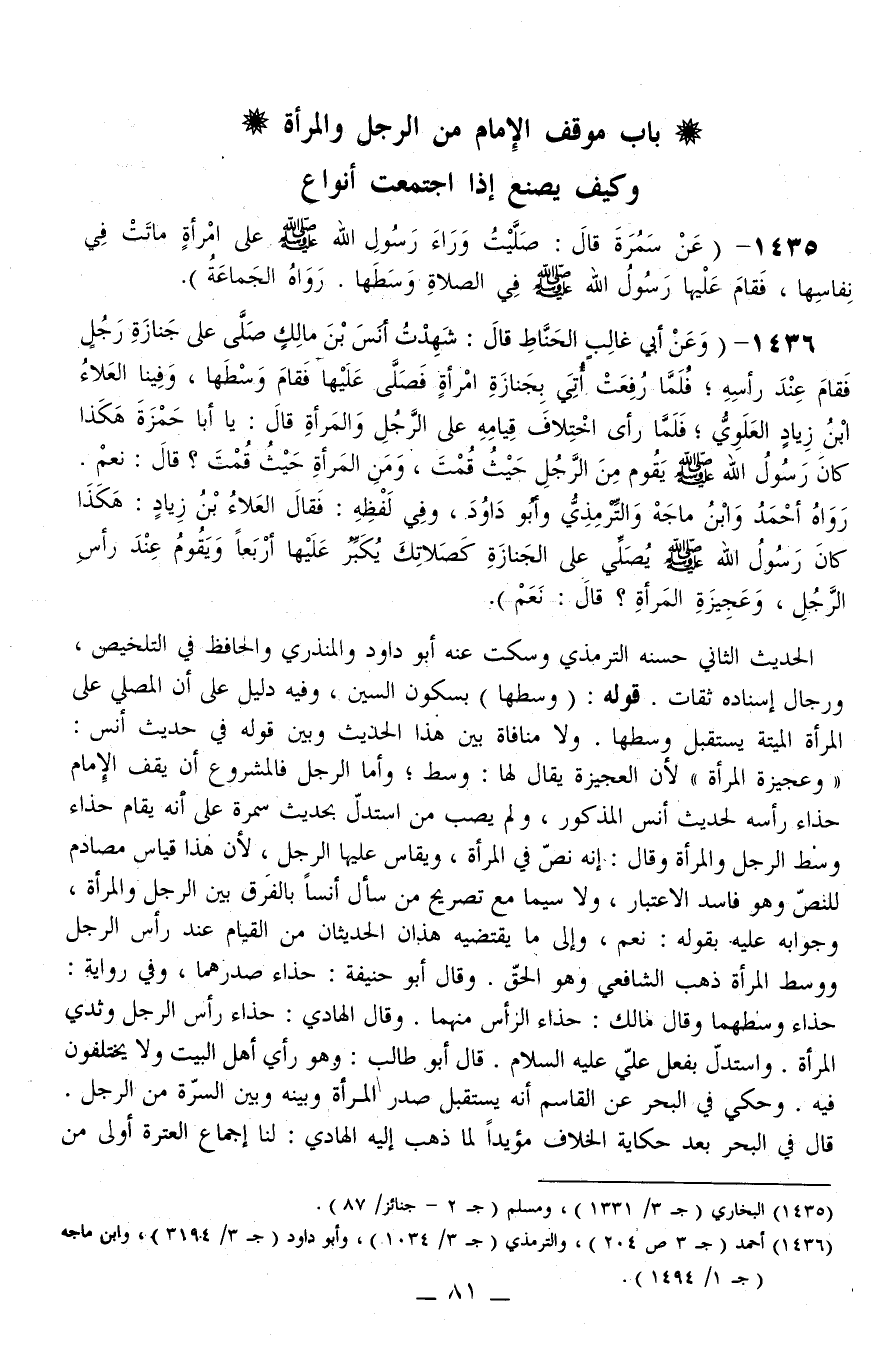 ✷ باب موقف الإمام من الرجل والمرأة ✷
وكيف يصنع إذا اجتمعت أنواع
١٤٣٥- ( عَنْ سَمُرَةَ قالَ : صَلَّيْتُ وَرَاءَ رَسُولِ الله ﷺ على امْرأةٍ ماتَتْ فِي
نِفاسِها ، فَقامَ عَلَيْها رَسُولُ الله ﷺ فِي الصلاةِ وَسَطَها . رَوَاهُ الجَماعَةُ ).
١٤٣٦- ( وَعَنْ أبي غالِبٍ الحَنَّاطِ قالَ : شَهِدْتُ أنَسَ بْنَ مالِكٍ صَلَّى على جَنازَةِ رَجُلٍ
فَقامَ عِنْدَ رأسِهِ ؛ فُلَمَّا رُفِعَتْ أُتِي بِجَنازَةِ امْرأةٍ فَصَلَّى عَلَيْها فَقامَ وَسْطَها ، وَفِينا العَلاءُ
ابْنُ زِيادٍ العَلَوِيُّ ؛ فَلَمَّا رأى اخْتِلافَ قِيامِهِ على الرَّجُلِ وَالمَرأةِ قالَ : يا أبا حَمْزَةَ هَكَذا
كانَ رَسُولُ الله ﷺ يَقُوم مِنَ الرَّجُلِ حَيْثُ قُمْتَ ، وَمَنِ المَرأةِ حَيْثُ قُمْتَ ؟ قالَ : نعمْ .
رَوَاهُ أحْمَدُ وَابْنُ ماجَهْ وَالتِّرْمِذِيُّ وأبُو دَاوُدَ ، وفِي لَفْظِهِ : فَقالَ العَلاءُ بْنُ زِيادٍ : هَكَذَا
كانَ رَسُولُ الله ﷺ يُصَلِّي على الجَنازَةِ كَصَلاتِكَ يُكَبِّرُ عَلَيْها أرْبَعاً وَيَقُومُ عِنْدَ رأسِ
الرَّجُلِ ، وَعَجِيزَةِ المَرأةِ ؟ قالَ : نَعَمْ ).
الحديث الثاني حسنه الترمذي وسكت عنه أبو داود والمنذري والحافظ في التلخيص ،
ورجال إسناده ثقات . قوله : ( وسطها ) بسكون السين ، وفيه دليل على أن المصلي على
المرأة الميتة يستقبل وسطها . ولا منافاة بين هذا الحذيث وبين قوله في حديث أنس :
« وعجيزة المرأة » لأن العجيزة يقال لها : وسط ؛ وأما الرجل فالمشروع أن يقف الإمام
حذاء رأسه لحديث أنس المذكور ، ولم يصب من استدلّ بحديث سمرة على أنه يقام حذاء
وسط الرجل والمرأة وقال : إنه نصّ في المرأة ، ويقاس عليها الرجل ، لأن هذا قياس مصادم
للنصّ وهو فاسد الاعتبار ، ولا سيما مع تصريح من سأل أنساً بالفرق بين الرجل والمرأة ،
وجوابه عليه بقوله : نعم ، وإلى ما يقتضيه هذان الحديثان من القيام عند رأس الرجل
ووسط المرأة ذهب الشافعي وهو الحقّ . وقال أبو حنيفة : حذاء صدرهما ، وفي رواية :
حذاء وسطهما وقال مالك : حذاء الرأس منهما . وقال الهادي : حذاء رأس الرجل وثدي
المرأة . واستدلّ بفعل عليّ عليه السلام . قال أبو طالب : وهو رأي أهل البيت ولا يختلفون
فيه . وحكي في البحر عن القاسم أنه يستقبل صدر المرأة وبينه وبين السرّة من الرجل .
قال في البحر بعد حكاية الخلاف مؤيداً لما ذهب إليه الهادي : لنا إجماع العترة أولى من
(١٤٣٥) البخاري ( جـ ٣/ ١٣٣١ ) ، ومسلم ( جـ ٢ - جنائز/ ٨٧ ) .
(١٤٣٦) أحمد ( جـ ٣ ص ٢٠٤ ) ، والترمذي ( جـ ٣/ ١٠٣٤ ) ، وأبو داود ( جـ ٣/ ٣١٩٤ ) ، وابن ماجه
( جـ ١/ ١٤٩٤ ) .
— ٨١ —